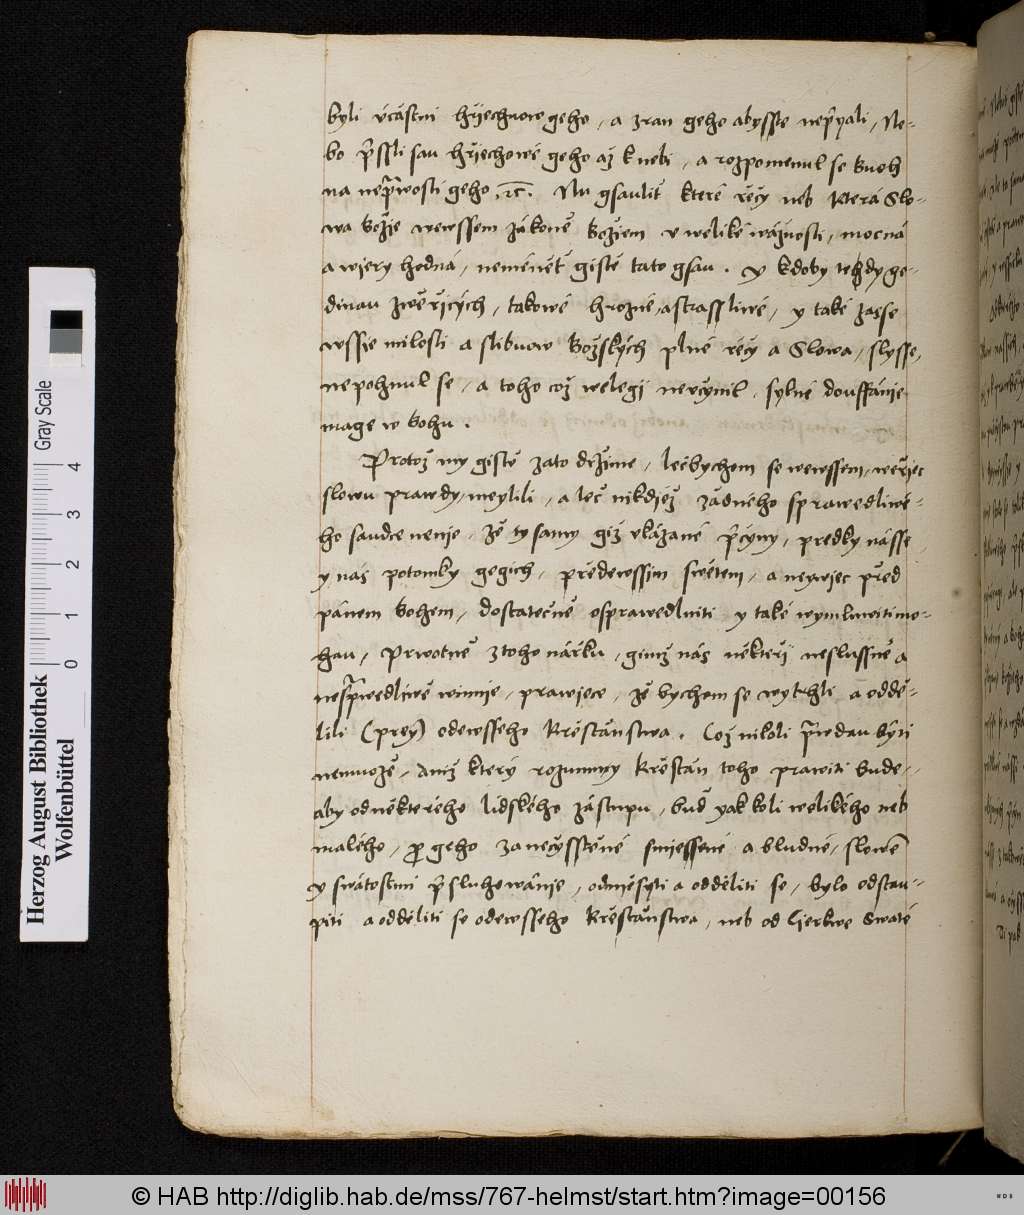 byli včástni hřjechuow geho, a zran geho abysste nepřyali, Ne-
bo přssli sau hřjechowé geho až k nebi, a rozpomenul se buoh
na nepřawosti geho, ꝛc. Nu gsaulit které řěčy neb která Slo-
wa božie wewssem zákoně božiem v weliké wážnosti, mocná
a wjery hodná, neméněť gistě tato gsau. Y kdoby tehdy ge-
dinau zwěřicých, takowé hrozné, a strasslíwé, y také zasse
wssie milosti a slibuow božských plné řěčy a Slowa, slysse,
nepohnul se, a toho což welegi nevčynil, sylné douffánie
mage w bohu.
Protož my gistě zato držíme, lečbychom se wewssem, wěřiec
slowu prawdy, meylili, a leč nikdjěž žádného sprawedliwé-
ho saudce nenie, že ty samy giž vkázané přčyny, předky násse
y nás potomky gegich, předewssím swětem, a neywjec před
pánem bohem, dostatečně osprawedlniti y také wymluwiti mo-
hau, Prwotně ztoho nářku, gimž nás někteřij neslussně a
nespřawedliwě winnie, prawjece, že bychom se wytrhli a oddě-
lili (prey) odewsseho Křěstánstwa. Což nikoli přawdau býti
nemuože, Aniž který rozumny Křěstán toho prawiti bude,
aby odněkterého lidského zástupu, buď yakkoli welikého neb
malého, pro geho zanečysstěné smjessené a bludné, slowem
y swátostmi přsluhowánie, odnjesti a odděliti se, bylo odstau-
piti a odděliti se odewsseho křěstánstwa, neb od Cjerkwe Swaté
Herzog August Bibliothek
Wolfenbüttel
0 1 2 3 4
Gray Scale
© HAB http://diglib.hab.de/mss/767-helmst/start.htm?image=00156
WDB